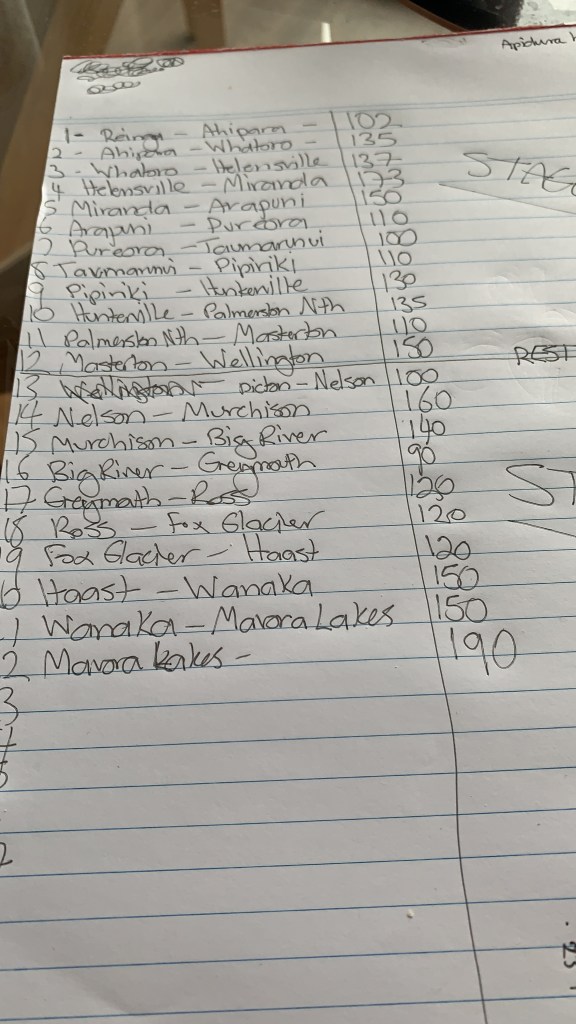 Apidura
1- Reinga - Ahipara - 102
2 - Ahipara - Whatoro - 135
3 - Whatoro - Helensville 137
4 Helensville - Miranda 173
5 Miranda - Arapuni 150
6 Arapuni - Pureora 110
7 Pureora - Taumarunui 100
8 Taumarunui - Pipiriki 110
9 Pipiriki - Hunterville 130
10 Hunterville - Palmerston Nth 135
11 Palmerston Nth - Masterton 110
12 Masterton - Wellington 150
REST
13 Picton - Nelson 100
14 Nelson - Murchison 160
15 Murchison - Big River 140
16 Big River - Greymouth 90
17 Greymouth - Ross 120
18 Ross - Fox Glacier 120
9 Fox Glacier - Haast 120
0 Haast - Wanaka 150
1 Wanaka - Mavora Lakes 150
2 Mavora Lakes - 190
3
4
5
2